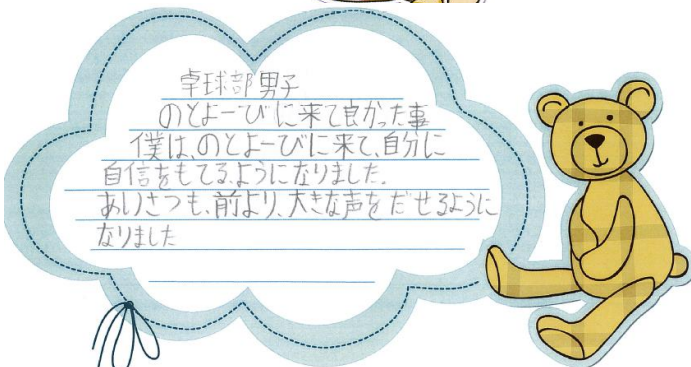 卓球部男子
のとよーびに来て良かった事
僕は、のとよーびに来て、自分に
自信をもてるようになりました。
あいさつも、前より、大きな声をだせるように
なりました